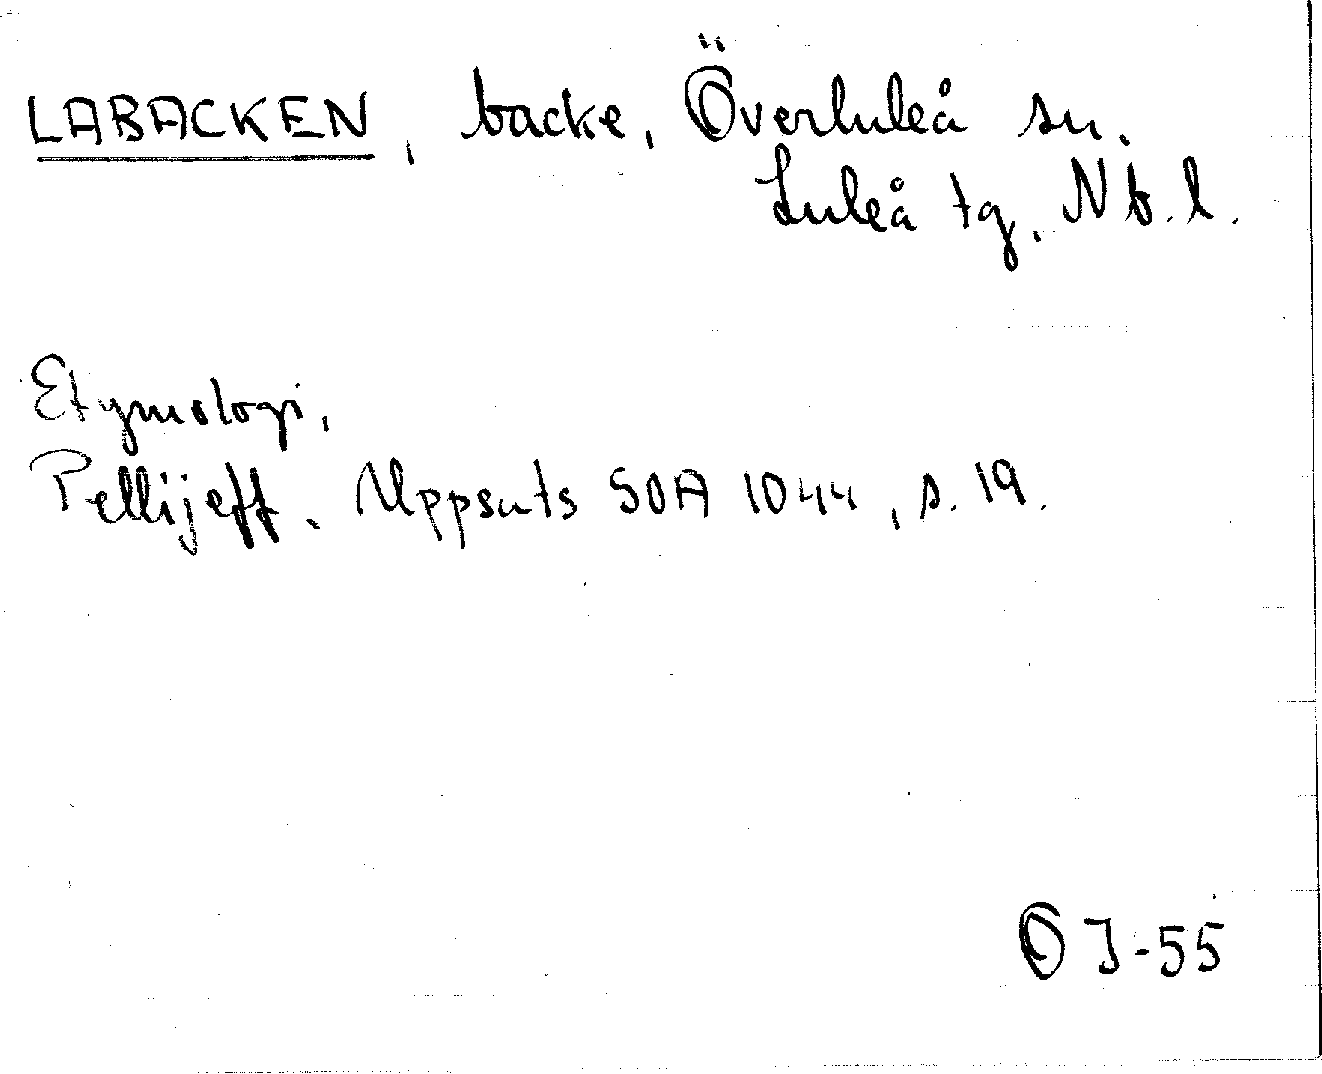 LABACKEN, backe, Överluleå sn.
Luleå tg. Nb. l.
Etymologi,
Pellijeff. Uppsats SOA 1044, s. 19.
Ö J-55